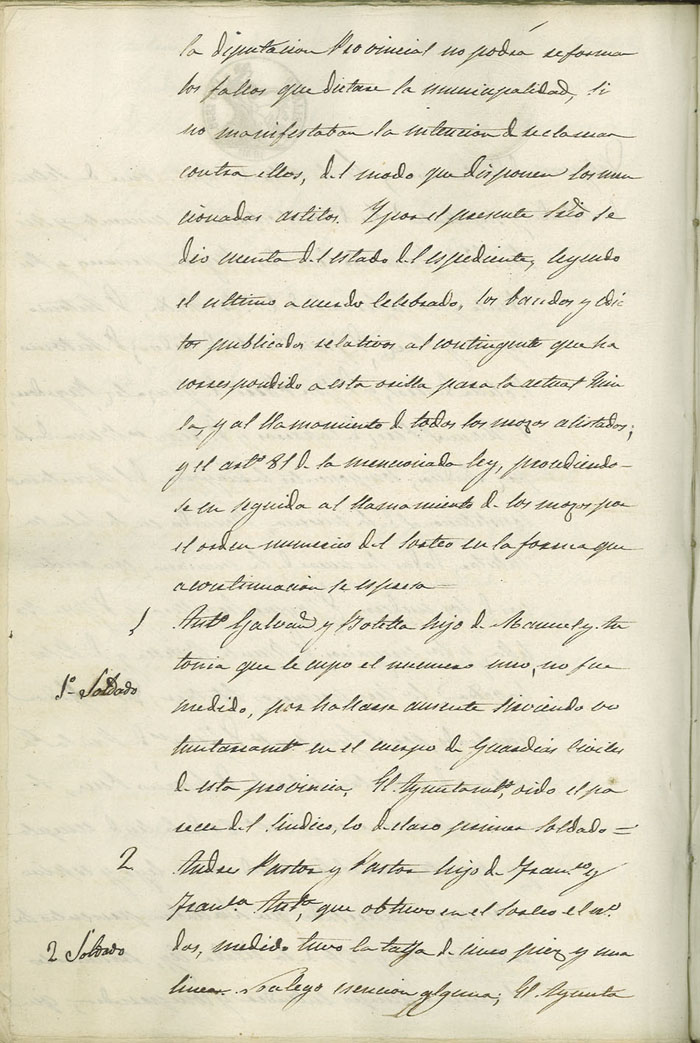 la diputacion Provincial no podrá reformar
los fallos que dictase la municipalidad, si
no manifestaban la intencion de reclamar
contra ellos, del modo que disponen los men
cionados artilos. Y por el presente Sr̃io se
dió cuenta del estado del espediente, leyendo
el ultimo acuerdo celebrado, los bandos y edic
tos publicados relativos al contingente que ha
correspondido a esta villa para la actual Quin
ta, y al llamamiento de todos los mozos alistados;
y el artº 81 de la mencionada ley, procediendo-
se en seguida al llamamiento de los mozos por
el orden numerico del sorteo en la forma que
a continuacion se espresa =
1
Antº Galvañ y Botella hijo de Manuel y An
tonia que le cupo el numero uno, no fue
1º Soldado
medido, por hallarse ausente sirviendo vo
luntariamte en el cuerpo de Guardias Civiles
de esta provincia, El Ayuntamtº, oido el pa
recer del Sindico, lo declaro primer soldado =
2
Andres Pastor y Pastor hijo de Francº y
Francª Antª, que obtuvo en el sorteo el nº
2 Soldado
dos, medido tuvo la talla de cinco pies y una
linea. No alego esencion alguna; El Ayunta